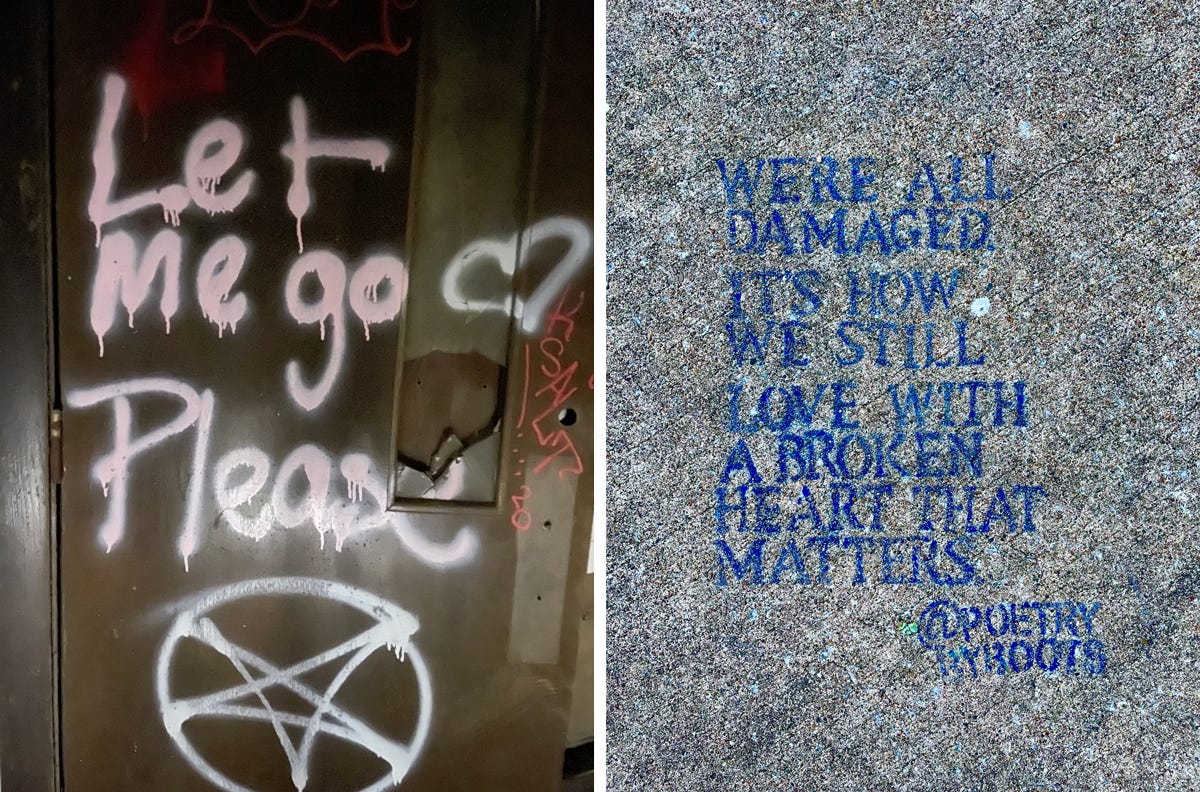 Let
me go
Please
WERE ALL
DAMAGED.
IT'S HOW
WE STILL
LOVE WITH
A BROKEN
HEART THAT
MATTERS.
@POETRY
BYBOOTS